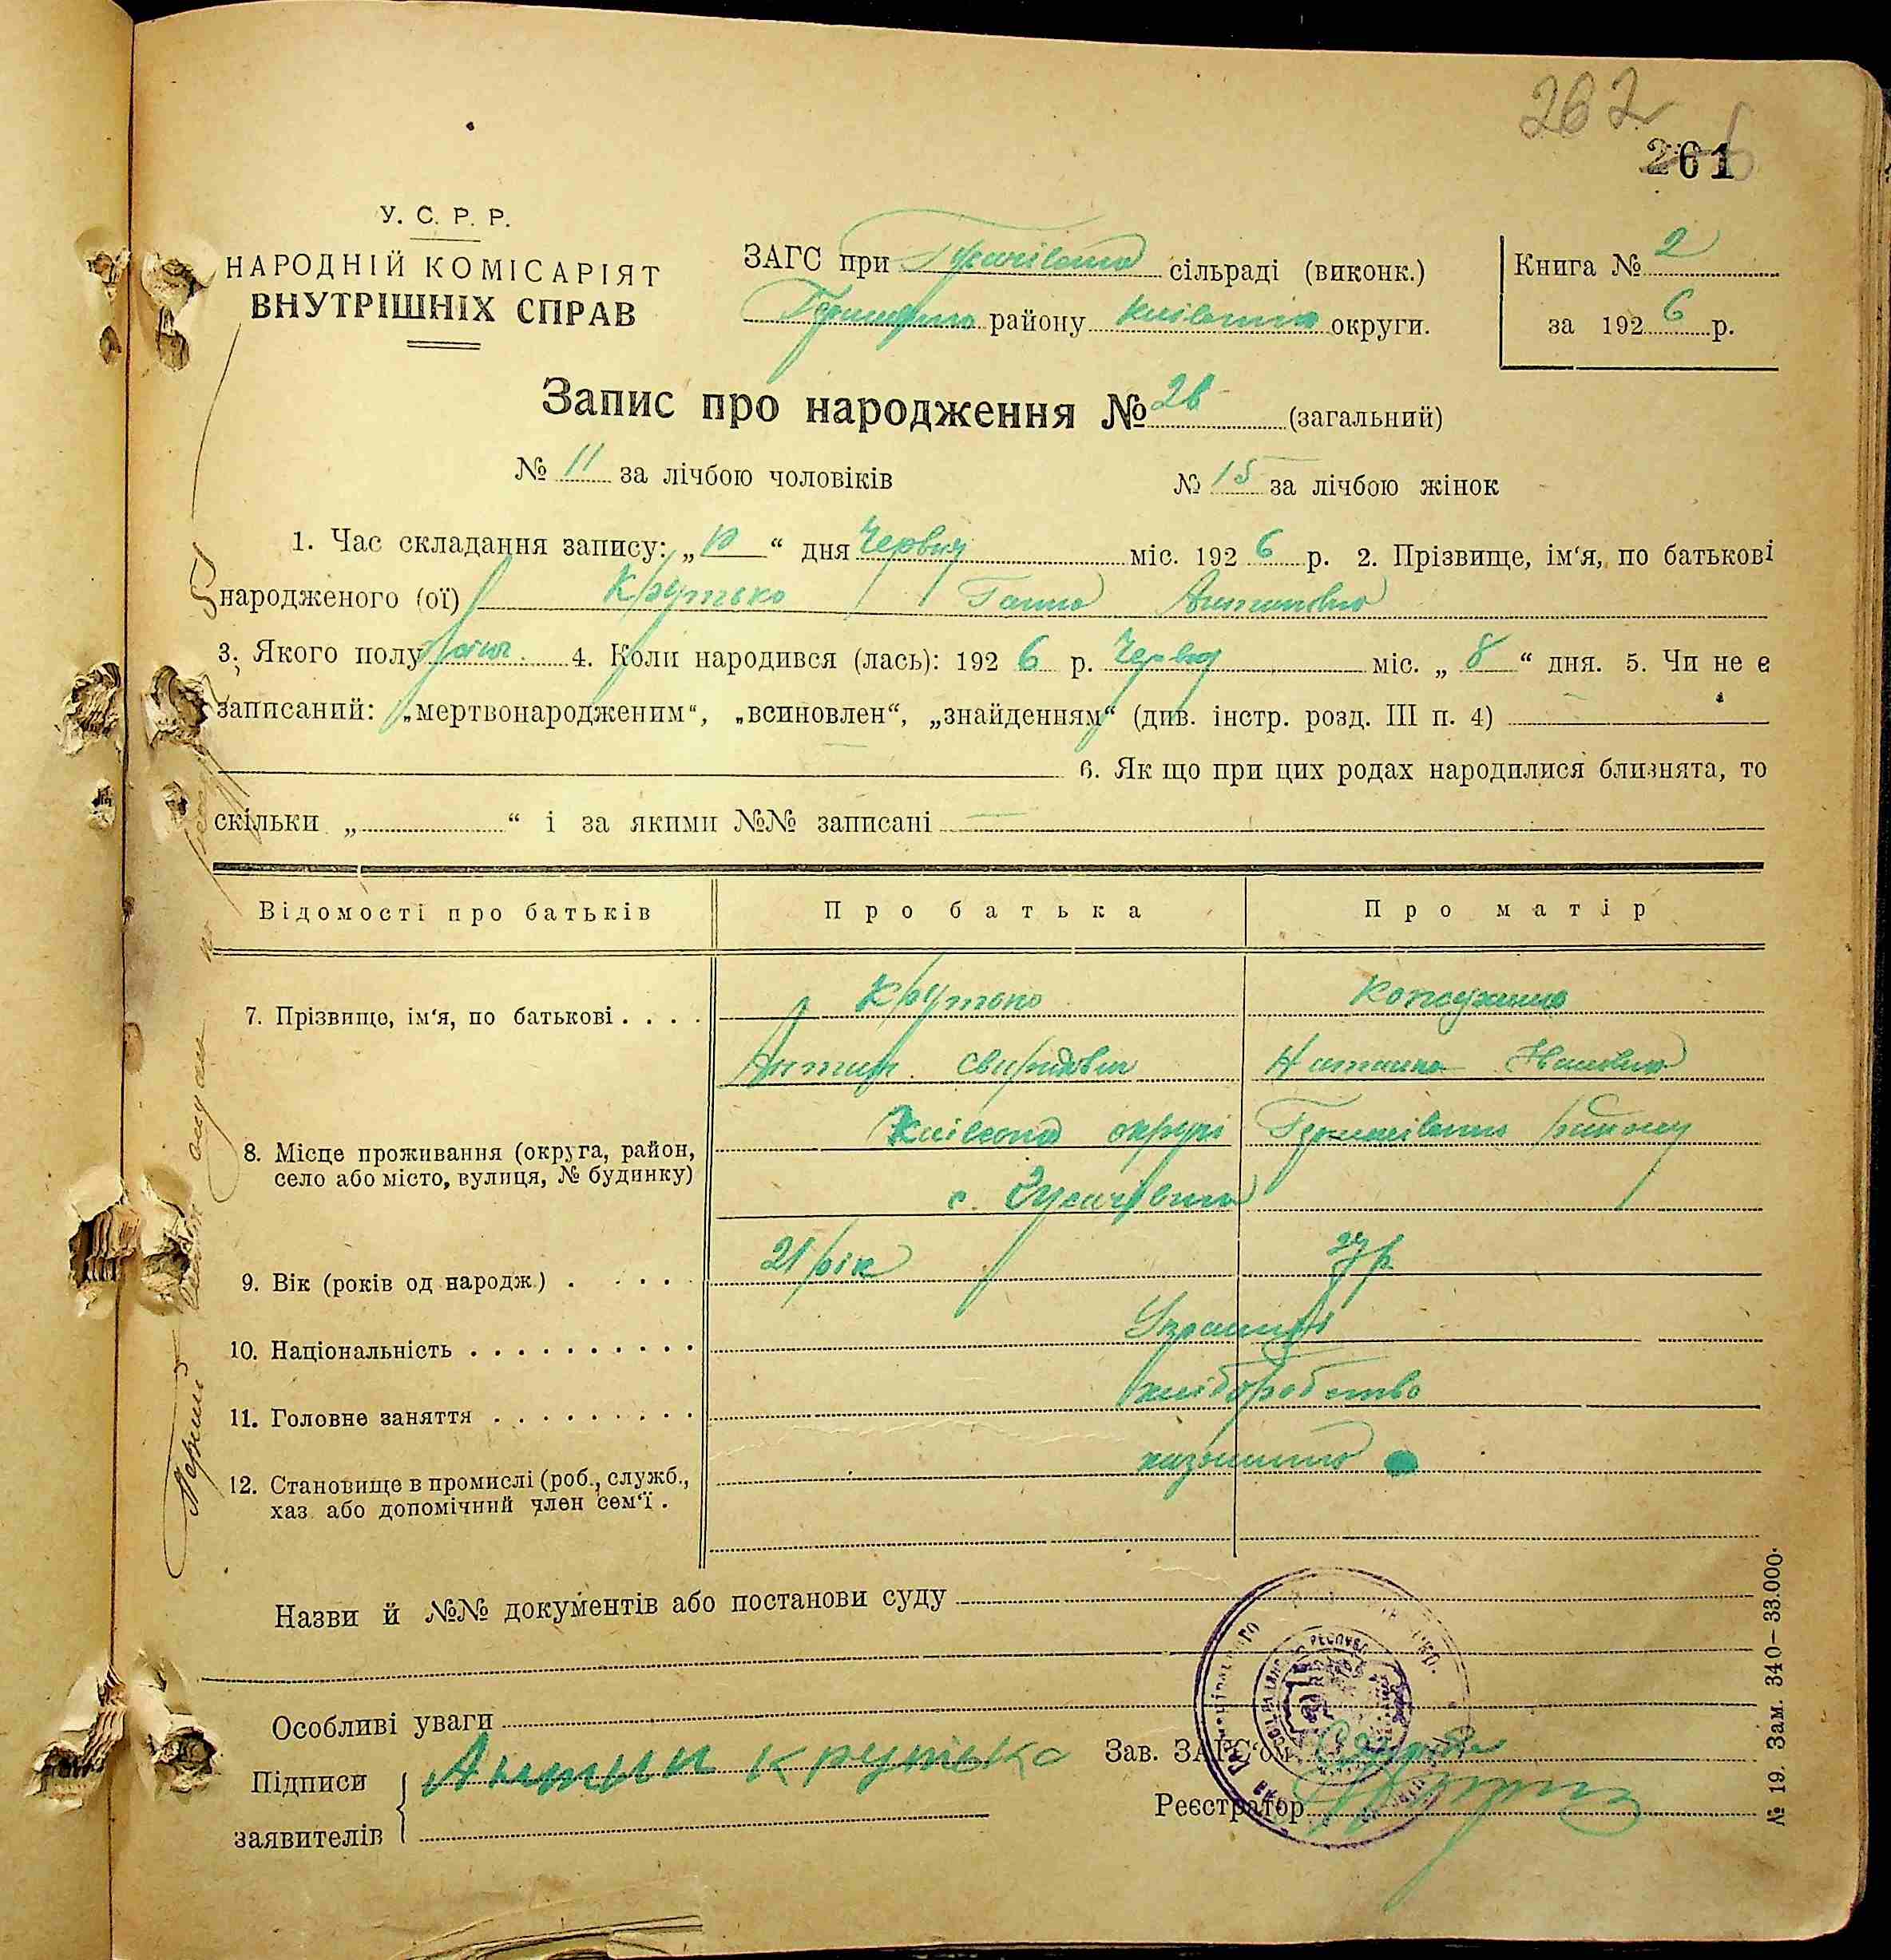 262
261
У. С. Р. Р.
НАРОДНІЙ КОМІСАРІЯТ
ВНУТРІШНІХ СПРАВ
ЗАГС при сільраді (виконк.)
району округи.
Книга № 2
за 192 6 р.
Запис про народження № 26 (загальний)
№ 11 за лічбою чоловіків № 15 за лічбою жінок
1. Час складання запису: „10“ дня Червня міс. 192 6 р. 2. Прізвище, ім‘я, по батькові
народженого (ої) Крутько Ганна Антиповна
3. Якого полу жін. 4. Коли народився (лась): 192 6 р. Червня міс. „8“ дня. 5. Чи не є
записаний: „мертвонародженим“, „всиновлен“, „знайденням“ (див. інстр. розд. III п. 4)
6. Як що при цих родах народилися близнята, то
скільки „ “ і за якими №№ записані
Відомості про батьків Про батька Про матір
7. Прізвище, ім‘я, по батькові . . . . Крутько
Антип Свиридович
8. Місце проживання (округа, район,
село або місто, вулиця, № будинку)
Київська округа району
с.
9. Вік (років од народж.) . . . . . 21 рік 27 р
10. Національність . . . . . . . . . . Українці
11. Головне заняття . . . . . . . . . хліборобство
12. Становище в промислі (роб., служб.,
хаз. або допомічний член сем‘ї .
Назви й №№ документів або постанови суду
Особливі уваги
Підписи Антип Крутько
заявителів
Зав. ЗАГС‘ом
Реєстратор
№ 19. Зам. 340—33.000.